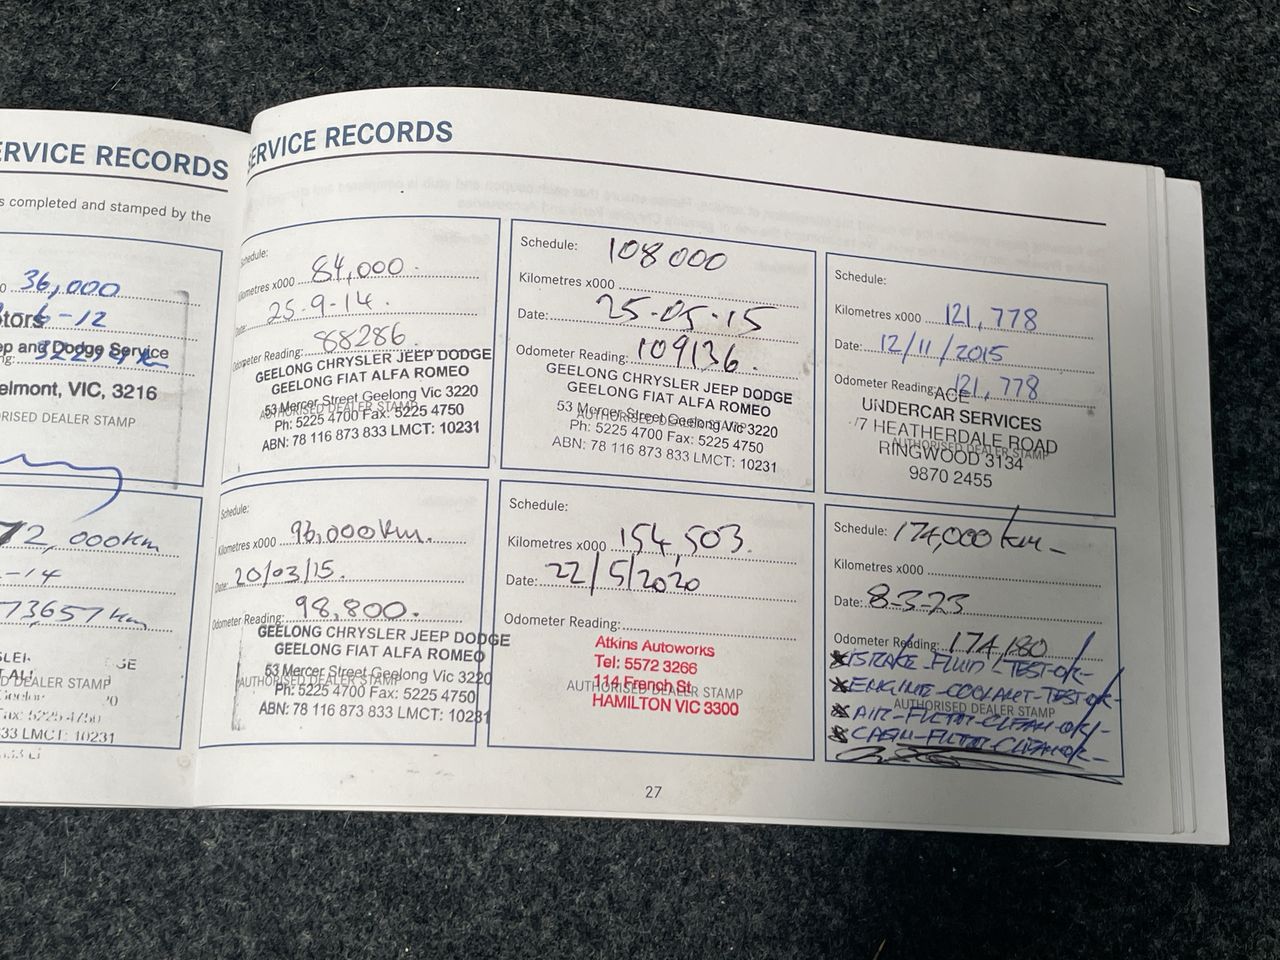 ERVICE RECORDS
s completed and stamped by the
36,000
6-12
tors
ep and Dodge Service
elmont, VIC, 3216
ORISED DEALER STAMP
72,000km
-14
73657 km
GE
DEALER STAMP
20
Fax: 5225 4750
33 LMCT: 10231
SERVICE RECORDS
Schedule:
Kilometres x000 84,000.
Date: 25-9-14.
Odometer Reading: 88286.
GEELONG CHRYSLER JEEP DODGE
GEELONG FIAT ALFA ROMEO
53 Mercer Street Geelong Vic 3220
AUTHORISED DEALER STAMP
Ph: 5225 4700 Fax: 5225 4750
ABN: 78 116 873 833 LMCT: 10231
Schedule: 108000
Kilometres x000
Date: 25-05-15
Odometer Reading: 109136.
GEELONG CHRYSLER JEEP DODGE
GEELONG FIAT ALFA ROMEO
53 Mercer Street Geelong Vic 3220
AUTHORISED DEALER STAMP
Ph: 5225 4700 Fax: 5225 4750
ABN: 78 116 873 833 LMCT: 10231
Schedule:
Kilometres x000 121,778
Date: 12/11/2015
Odometer Reading: 121,778
ACE
UNDERCAR SERVICES
/7 HEATHERDALE ROAD
AUTHORISED DEALER STAMP
RINGWOOD 3134
9870 2455
Schedule:
Kilometres x000 96,000km.
Date: 20/03/15.
Odometer Reading: 98,800.
GEELONG CHRYSLER JEEP DODGE
GEELONG FIAT ALFA ROMEO
53 Mercer Street Geelong Vic 3220
AUTHORISED DEALER STAMP
Ph: 5225 4700 Fax: 5225 4750
ABN: 78 116 873 833 LMCT: 10231
Schedule:
Kilometres x000 154,503.
Date: 22/5/2020
Odometer Reading:
Atkins Autoworks
Tel: 5572 3266
114 French St
AUTHORISED DEALER STAMP
HAMILTON VIC 3300
Schedule: 174,000 km-
Kilometres x000
Date: 8-3-23
Odometer Reading: 174,180
BRAKE-FLUID-TEST-OK-
ENGINE-COOLANT-TEST-OK-
AUTHORISED DEALER STAMP
AIR-FILTER-CLEAN-OK/-
CABIN-FILTER-CLEAN OK-
27